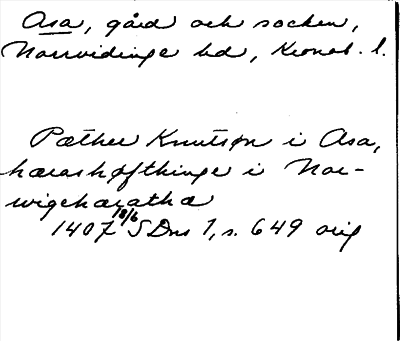 Asa, gård och socken,
Norrvidinge hd, Kronob. l.
Pæther Knutson i Asa,
hæræshøfthinge i Nor-
wigehæratha
1407 18/6 SDns 1, s. 649 orig